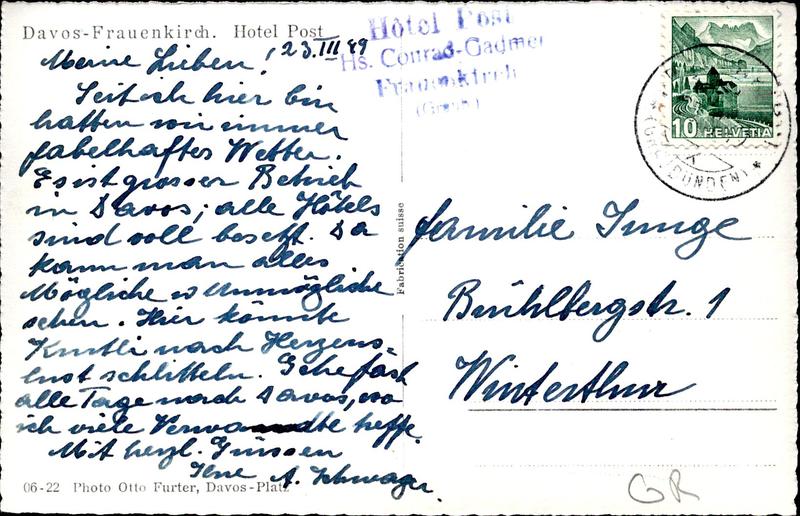 Davos-Frauenkirch. Hotel Post
23. III 49
Hôtel Post
Hs. Conrad-Gadmer
Frauenkirch
(Graub.)
Meine Lieben!
Seit ich hier bin
hatten wir immer
fabelhaftes Wetter.
Es ist grosser Betrieb
in Davos; alle Hôtels
sind voll besetzt. Da
kann man alles
Mögliche u Unmögliche
sehen. Hier könnte
nach Herzens-
lust schlitteln. Gehe fast
alle Tage nach Davos, wo
ich viele Verwandte treffe.
Mit herzl. Grüssen
A. Schwager.
06-22 Photo Otto Furter, Davos-Platz
Fabrication suisse
10 HELVETIA
(GRAUBÜNDEN)
Familie Junge
Brühlbergstr. 1
Winterthur
GR